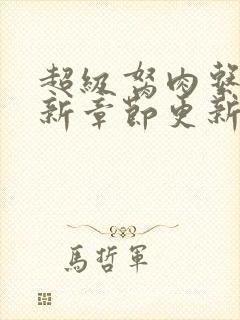 超級胬肉
新章節更新
馬哲軍